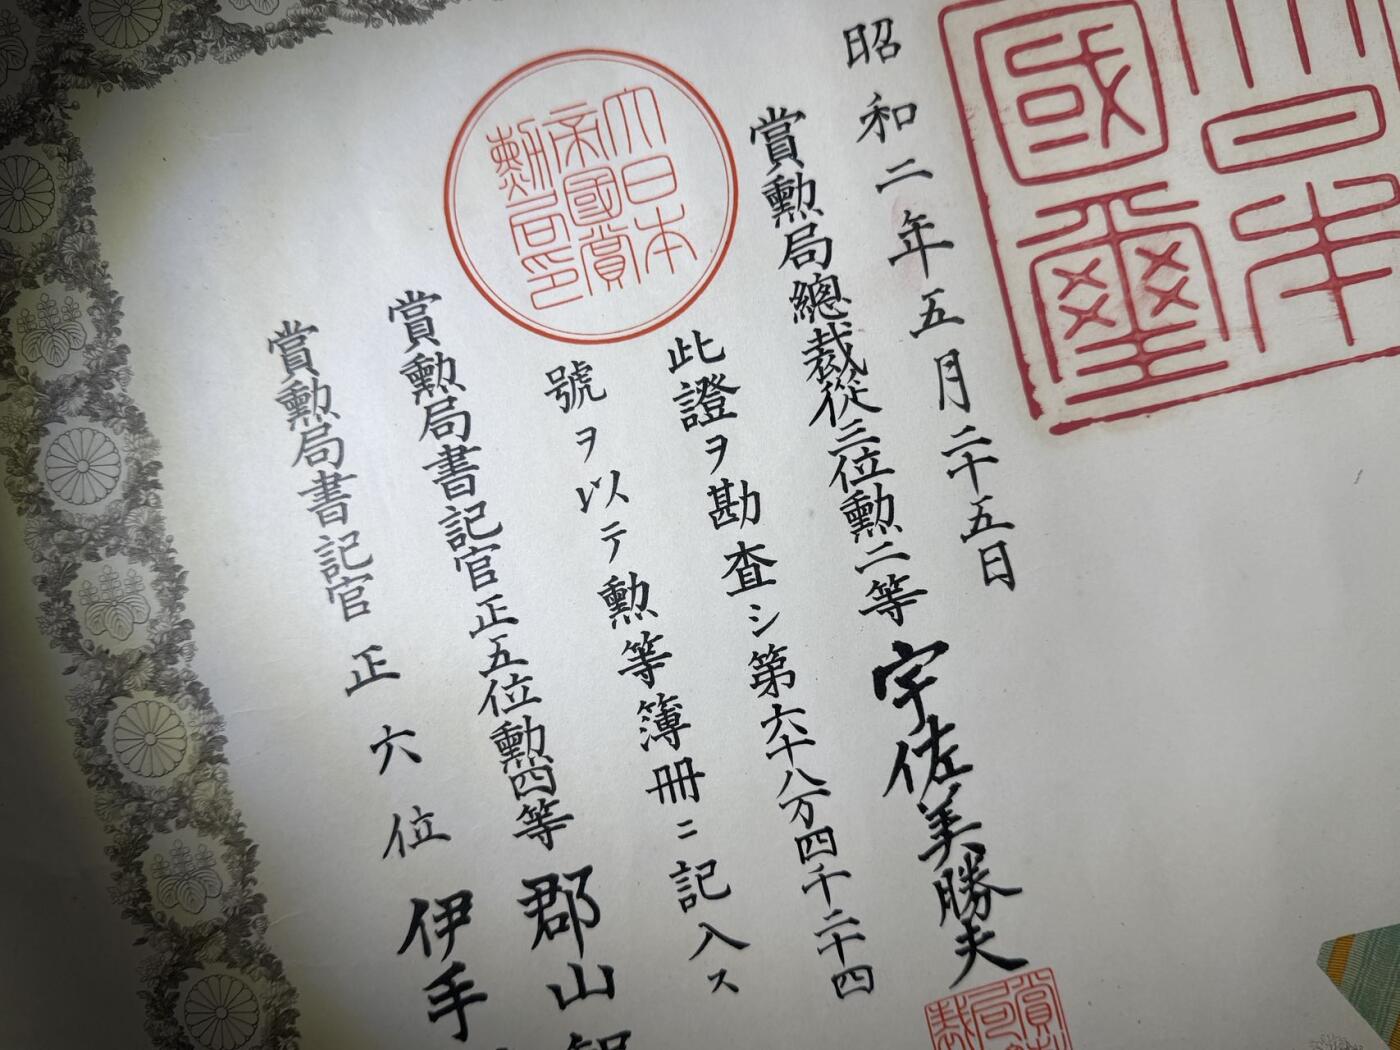 大日本
國璽
昭和二年五月二十五日
賞勲局總裁從三位勲二等宇佐美勝夫
大日本
帝國賞
勲局印
此證ヲ勘査シ第六十八万四千二十四
號ヲ以テ勲等簿冊ニ記入ス
賞勲局書記官正五位勲四等郡山
賞勲局書記官正六位伊手